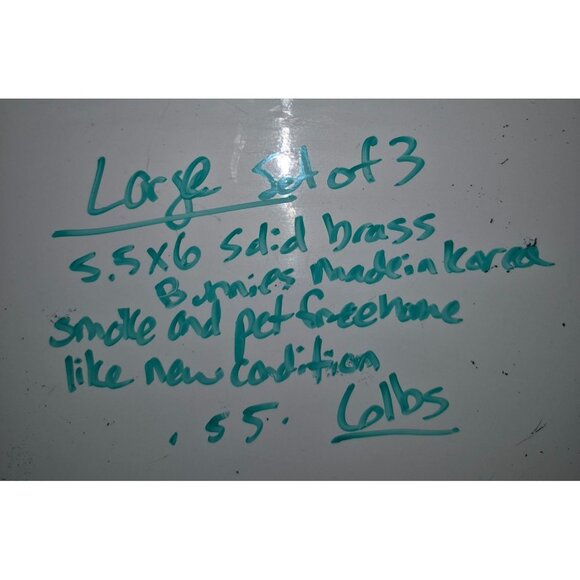 Large Set of 3
5.5x6 Solid brass
Bunnies made in Korea
smoke and pet free home
like new condition
.55. 6lbs